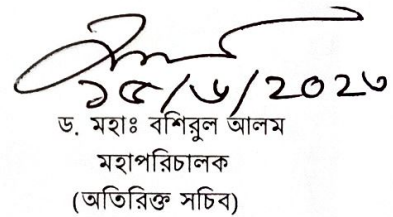 ১৫/৬/2020
ড. মহাঃ বশিরুল আলম
মহাপরিচালক
(অতিরিক্ত সচিব)